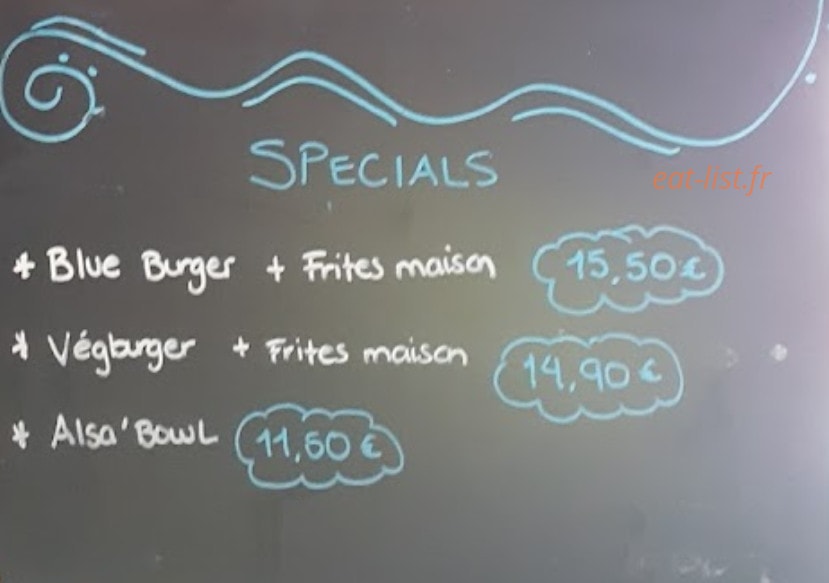 SPECIALS
eat-list.fr
* Blue Burger + Frites maison 15,50€
* Végburger + Frites maison 14,90€
* Alsa'Bowl 11,60€